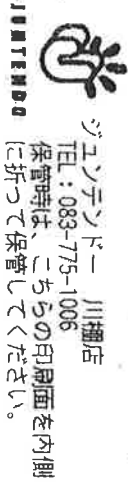 JUNTENDO
ジュンテンドー 川棚店
TEL：083-775-1006
保管時は、こちらの印刷面を内側
に折って保管してください。